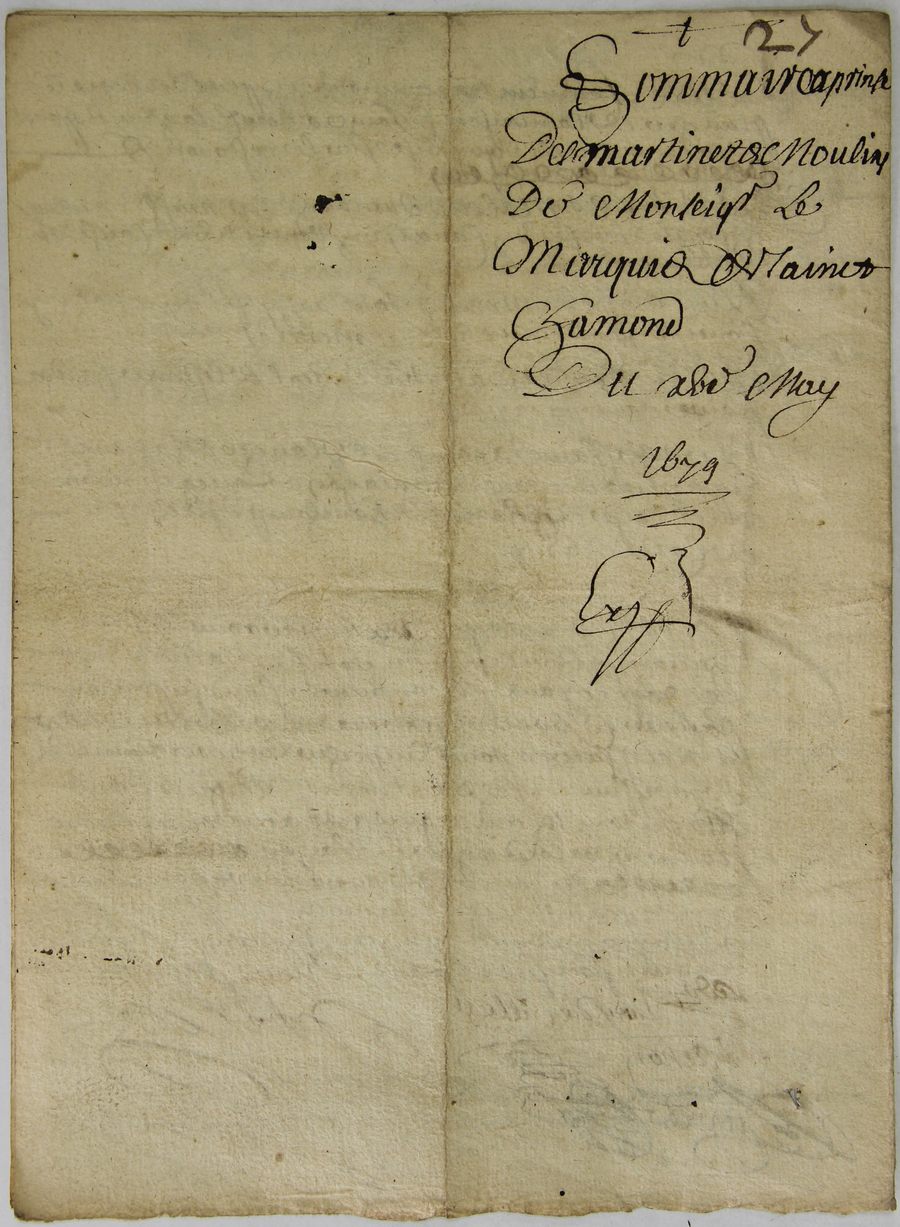 27
Sommaire aprinse
Des martinet & Moulins
De Monseigr Le
Marquis De Sainct
Chamond
Du May
1679